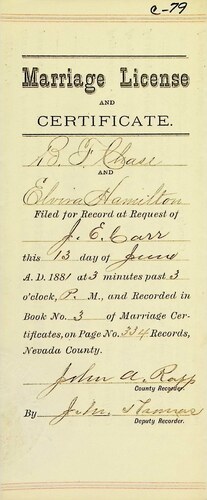 C-79
Marriage License
AND
CERTIFICATE.
B. F. Chase
AND
Elvira Hamilton
Filed for Record at Request of
J. E. Carr
this 13 day of June
A. D. 1881 at 3 minutes past 3
o'clock, P. M., and Recorded in
Book No. 3 of Marriage Cer-
tificates, on Page No. 334 Records,
Nevada County.
John A. Rapp
County Recorder.
By Jno. Thomas
Deputy Recorder.